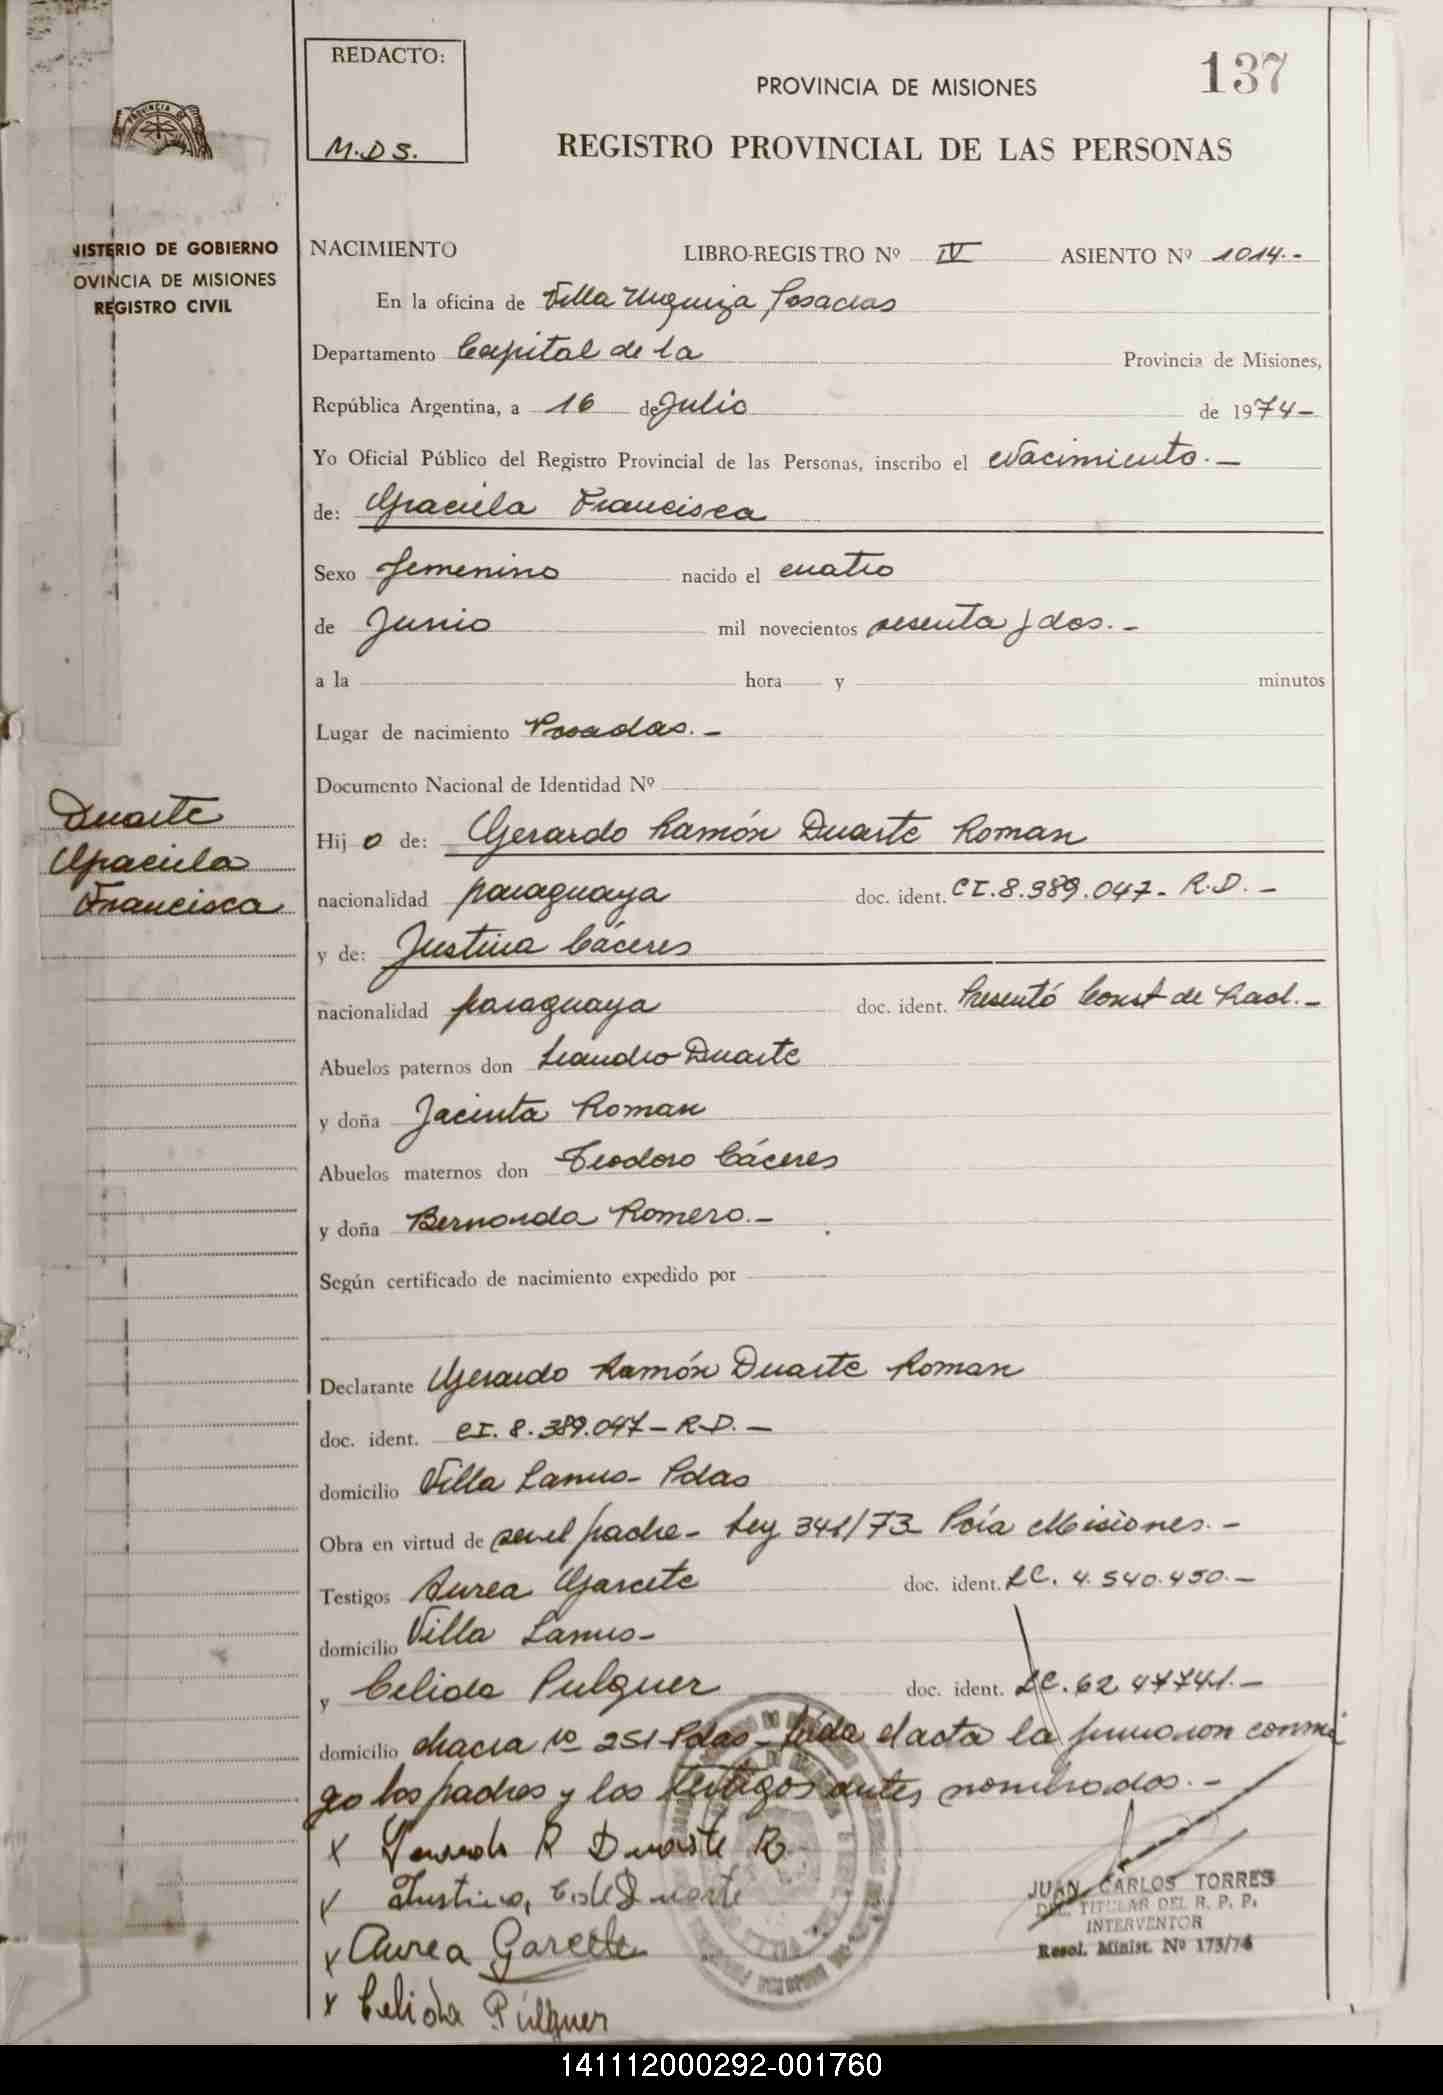 REDACTO:
M.D.S.
137
PROVINCIA DE MISIONES
REGISTRO PROVINCIAL DE LAS PERSONAS
PROVINCIA DE
NISTERIO DE GOBIERNO
OVINCIA DE MISIONES
REGISTRO CIVIL
NACIMIENTO LIBRO-REGISTRO Nº IV ASIENTO Nº 1014.-
En la oficina de Villa Urquiza Posadas
Departamento Capital de la Provincia de Misiones,
República Argentina, a 16 de Julio de 1974-
Yo Oficial Público del Registro Provincial de las Personas, inscribo el Nacimiento.-
de: Graciela Francisca
Sexo femenino nacido el cuatro
de Junio mil novecientos sesenta y dos.-
a la hora y minutos
Lugar de nacimiento Posadas.-
Documento Nacional de Identidad Nº
Duarte
Graciela
Francisca
Hij o de: Gerardo Ramón Duarte Roman
nacionalidad paraguaya doc. ident. CI.8.389.047- R.D.-
y de: Justina Cáceres
nacionalidad paraguaya doc. ident. Presentó Const de Rad.-
Abuelos paternos don Leandro Duarte
y doña Jacinta Roman
Abuelos maternos don Teodoro Cáceres
y doña Bernarda Romero.-
Según certificado de nacimiento expedido por
Declarante Gerardo Ramón Duarte Roman
doc. ident. CI. 8.389.047- R.D.-
domicilio Villa Lanus- Pdas
Obra en virtud de ser el padre- Ley 341/73 Pcia Misiones.-
Testigos Aurea Garcete doc. ident. LC. 4.540.450.-
domicilio Villa Lanus-
y Celida Pulguer doc. ident. LC. 62 47741.-
domicilio chacra Nº 251-Pdas- leida el acta la firmaron conmi
go los padres y los testigos antes nombrados.-
x Gerardo R Duarte R
x Justina, C de Duarte
x Aurea Garcete
x Celida Pulguer
JUAN CARLOS TORRES
DEL. TITULAR DEL R. P. P.
INTERVENTOR
Resol. Minist. Nº 173/74
141112000292-001760